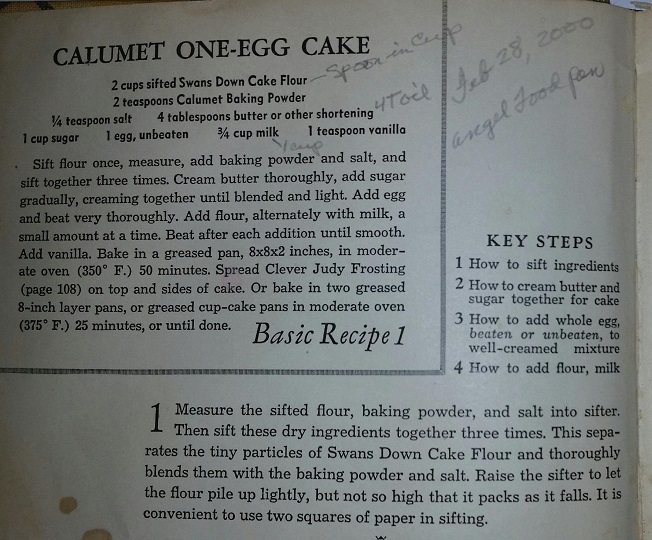 CALUMET ONE-EGG CAKE
2 cups sifted Swans Down Cake Flour — Spoon in cup
2 teaspoons Calumet Baking Powder
¼ teaspoon salt 4 tablespoons butter or other shortening 4T oil
1 cup sugar 1 egg, unbeaten ¾ cup milk 1 teaspoon vanilla
1 cup
Sift flour once, measure, add baking powder and salt, and
sift together three times. Cream butter thoroughly, add sugar
gradually, creaming together until blended and light. Add egg
and beat very thoroughly. Add flour, alternately with milk, a
small amount at a time. Beat after each addition until smooth.
Add vanilla. Bake in a greased pan, 8x8x2 inches, in moder-
ate oven (350° F.) 50 minutes. Spread Clever Judy Frosting
(page 108) on top and sides of cake. Or bake in two greased
8-inch layer pans, or greased cup-cake pans in moderate oven
(375° F.) 25 minutes, or until done.
Basic Recipe 1
Feb 28, 2000
angel Food pan
KEY STEPS
1 How to sift ingredients
2 How to cream butter and
sugar together for cake
3 How to add whole egg,
beaten or unbeaten, to
well-creamed mixture
4 How to add flour, milk
1 Measure the sifted flour, baking powder, and salt into sifter.
Then sift these dry ingredients together three times. This sepa-
rates the tiny particles of Swans Down Cake Flour and thoroughly
blends them with the baking powder and salt. Raise the sifter to let
the flour pile up lightly, but not so high that it packs as it falls. It is
convenient to use two squares of paper in sifting.